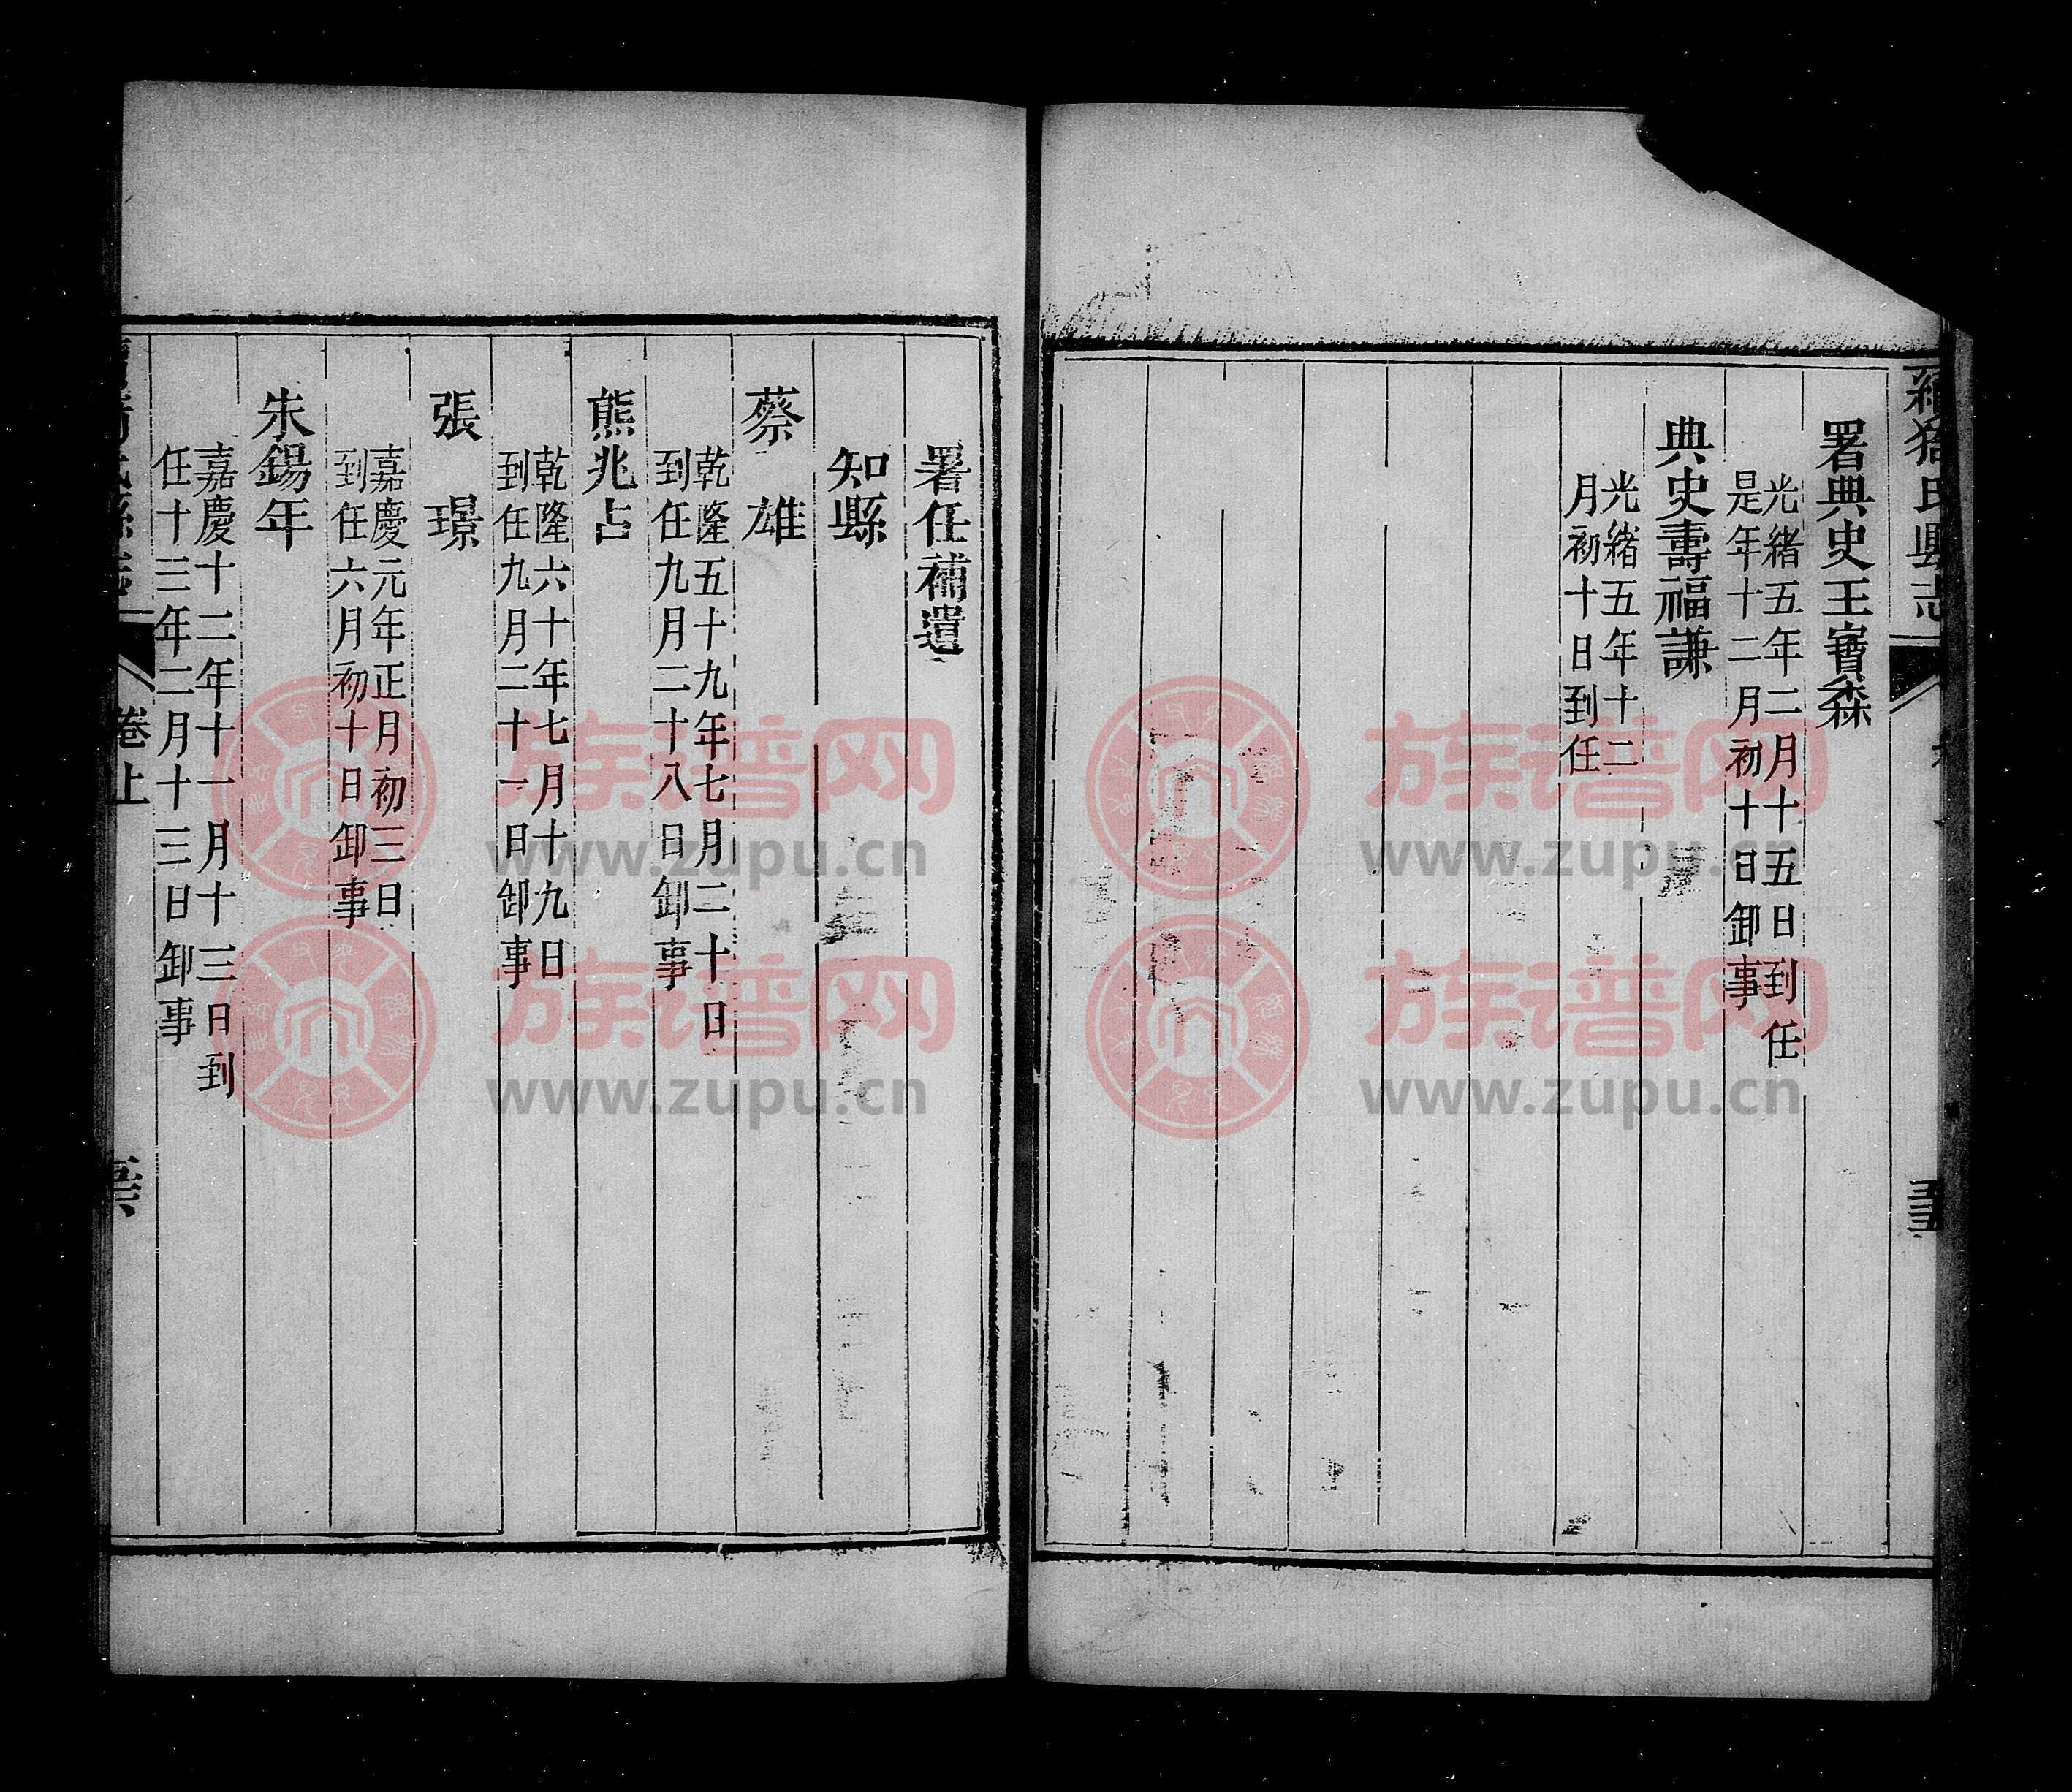 續猗氏縣志
署典史王寶森
光緒五年二月十五日到任
是年十二月初十日卸事
典史壽福謙
光緒五年十二
月初十日到任
署任補遺
知縣
蔡雄
乾隆五十九年七月二十日
到任九月二十八日卸事
熊兆占
乾隆六十年七月十九日
到任九月二十一日卸事
張璟
嘉慶元年正月初三日
到任六月初十日卸事
朱錫年
嘉慶十二年十一月十三日到
任十三年二月十三日卸事
卷上
族谱网
www.zupu.cn
族谱网
www.zupu.cn
族谱网
www.zupu.cn
族谱网
www.zupu.cn